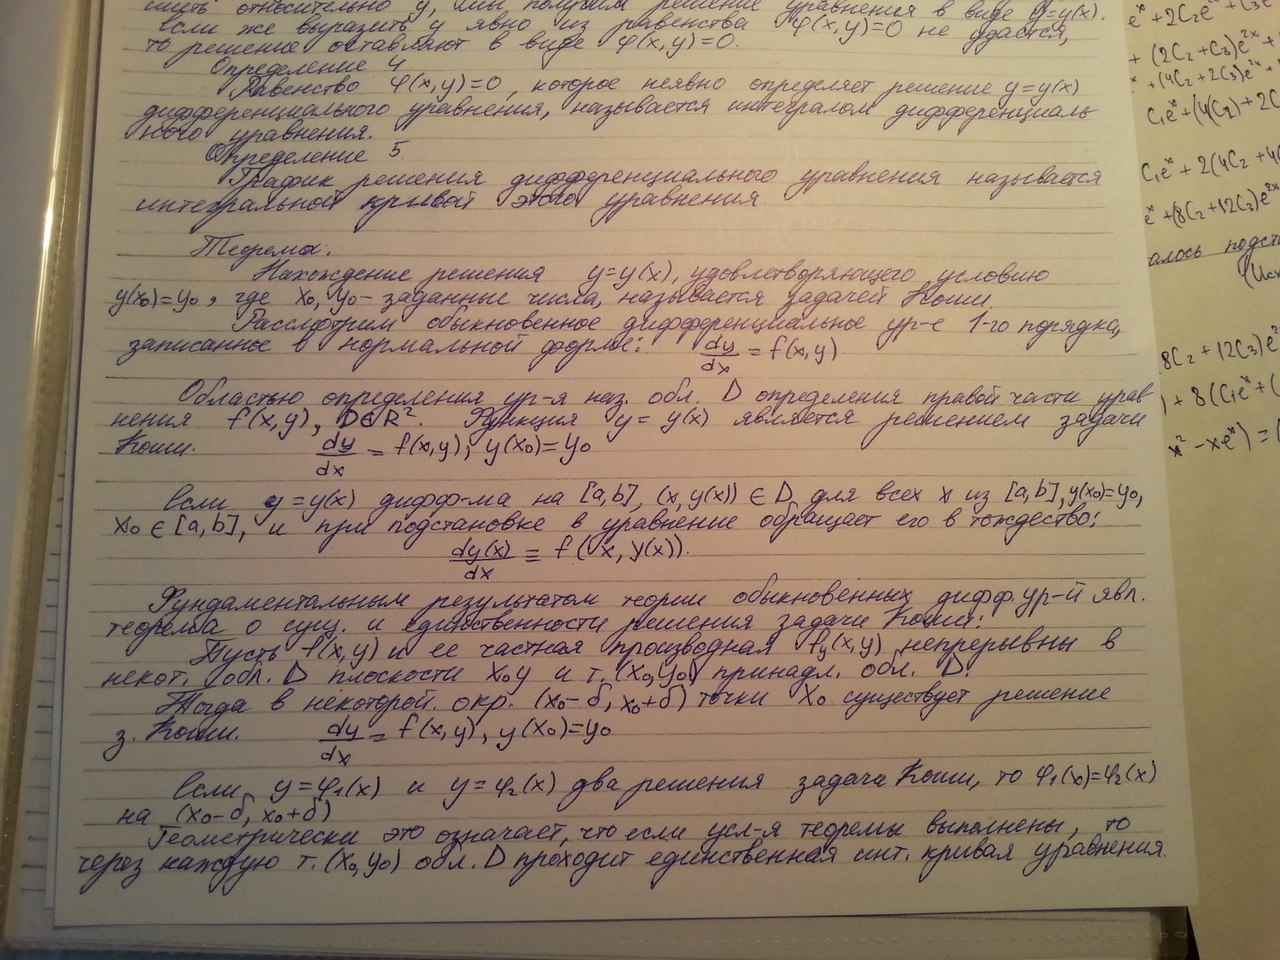 относительно y, или получим решение уравнения в виде y=y(x).
Если же выразить y явно из равенства φ(x,y)=0 не удастся,
то решение оставляют в виде φ(x,y)=0.
Определение 4
Равенство φ(x,y)=0, которое неявно определяет решение y=y(x)
дифференциального уравнения, называется интегралом дифференциаль
ного уравнения.
Определение 5.
График решения дифференциального уравнения называется
интегральной кривой этого уравнения.
Теорема.
Нахождение решения y=y(x), удовлетворяющего условию
y(x₀)=y₀, где x₀, y₀ - заданные числа, называется задачей Коши
Рассмотрим обыкновенное дифференциальное ур-е 1-го порядка,
записанное в нормальной форме: dy/dx = f(x,y)
Областью определения ур-я наз. обл. D определения правой части урав
нения f(x,y), D∈R². Функция y = y(x) является решением задачи
Коши. dy/dx = f(x,y), y(x₀)=y₀
Если y=y(x) дифф-ма на [a,b], (x,y(x)) ∈ D для всех x из [a,b], y(x₀)=y₀,
x₀ ∈ [a,b], и при подстановке в уравнение обращает его в тождество:
dy(x)/dx ≡ f(x, y(x)).
Фундаментальным результатом теории обыкновенных дифф. ур-й явл.
теорема о сущ. и единственности решения задачи Коши:
Пусть f(x,y) и ее частная производная fy(x,y) непрерывны в
некот. обл. D плоскости x₀y и т. (x₀,y₀) принадл. обл. D.
Тогда в некоторой окр. (x₀-δ, x₀+δ) точки x₀ существует решение
з. Коши. dy/dx = f(x,y), y(x₀)=y₀
Если y=φ₁(x) и y=φ₂(x) два решения задачи Коши, то φ₁(x)=φ₂(x)
на (x₀-δ, x₀+δ)
Геометрически это означает, что если усл-я теоремы выполнены, то
через каждую т. (x₀,y₀) обл. D проходит единственная инт. кривая уравнения.
+ (2C₂+C₃)e²ˣ
+ (4C₂+2C₃)e²ˣ
C₁eˣ + 2(4C₂ +
eˣ+(8C₂+12C₃)e²ˣ
алось подст
8C₂ + 12C₃)e²
) + 8(C₁eˣ + (
- xeˣ) =